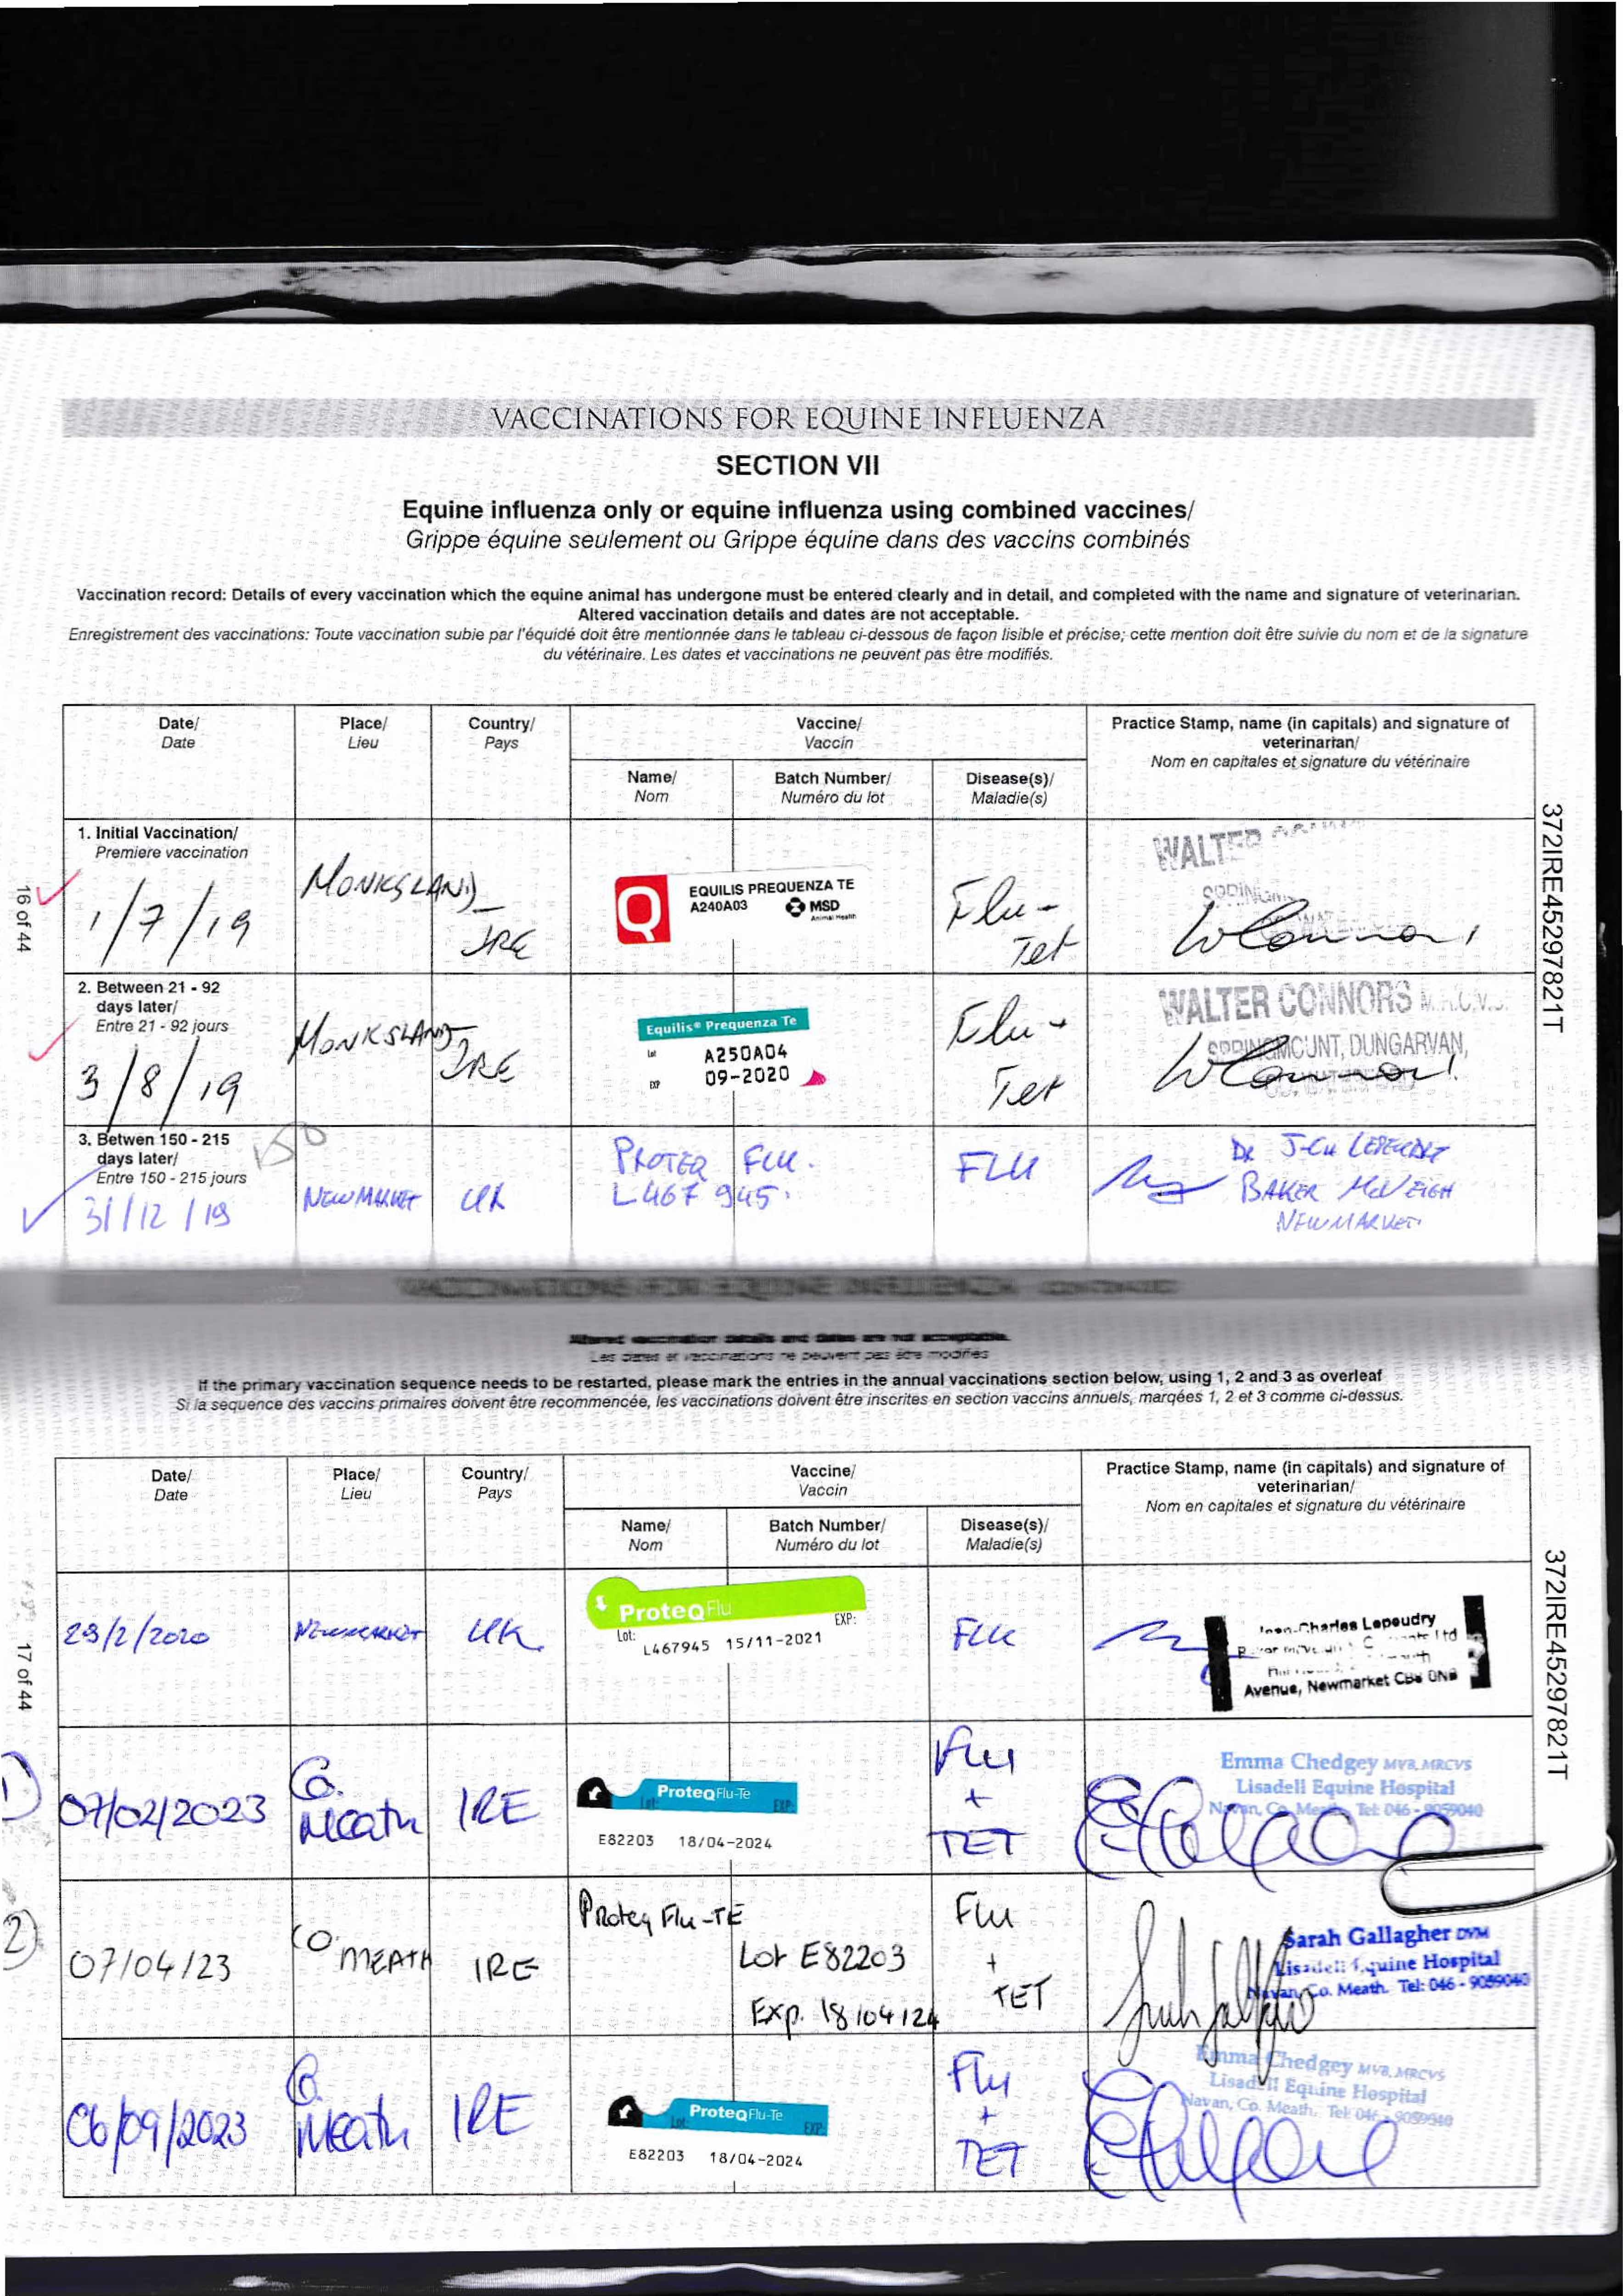 VACCINATIONS FOR EQUINE INFLUENZA
SECTION VII
Equine influenza only or equine influenza using combined vaccines/
Grippe équine seulement ou Grippe équine dans des vaccins combinés
Vaccination record: Details of every vaccination which the equine animal has undergone must be entered clearly and in detail, and completed with the name and signature of veterinarian.
Altered vaccination details and dates are not acceptable.
Enregistrement des vaccinations: Toute vaccination subie par l'équidé doit être mentionnée dans le tableau ci-dessous de façon lisible et précise; cette mention doit être suivie du nom et de la signature
du vétérinaire. Les dates et vaccinations ne peuvent pas être modifiés.
Date/ Place/ Country/ Vaccine/ Practice Stamp, name (in capitals) and signature of
Date Lieu Pays Vaccin veterinarian/
Nom en capitales et signature du vétérinaire
Name/ Batch Number/ Disease(s)/
Nom Numéro du lot Maladie(s)
1. Initial Vaccination/
Premiere vaccination
1/7/19 MONKSLAND IRE
EQUILIS PREQUENZA TE
A240A03 MSD
Animal Health
Flu-
Tet
WALTER
2. Between 21 - 92
days later/
Entre 21 - 92 jours
3/8/19 MONKSLAND IRE
Equilis® Prequenza Te
Lot A250A04
EXP 09-2020
Flu-
Tet
WALTER CONNORS M.R.C.V.S.
SPRINGMOUNT, DUNGARVAN,
3. Betwen 150 - 215
days later/
Entre 150 - 215 jours
150
31/12/19 NEWMARKET UK
PROTEQ FLU.
L467945.
FLU
BAKER McVEIGH
NEWMARKET
16 of 44
372IRE45297821T
Altered vaccination details and dates are not acceptable.
Les dates et vaccinations ne peuvent pas être modifiés
If the primary vaccination sequence needs to be restarted, please mark the entries in the annual vaccinations section below, using 1, 2 and 3 as overleaf
Si la sequence des vaccins primaires doivent être recommencée, les vaccinations doivent être inscrites en section vaccins annuels, marqées 1, 2 et 3 comme ci-dessus.
Date/ Place/ Country/ Vaccine/ Practice Stamp, name (in capitals) and signature of
Date Lieu Pays Vaccin veterinarian/
Nom en capitales et signature du vétérinaire
Name/ Batch Number/ Disease(s)/
Nom Numéro du lot Maladie(s)
/2/2020 NEWMARKET UK.
ProteqFlu
Lot: EXP:
L467945 15/11-2021
FLU
Jean-Charles Lepeudry
Avenue, Newmarket
1)
07/02/2023 Co. Meath IRE
ProteqFlu-Te
Lot: EXP:
E82203 18/04-2024
Flu
+
TET
Emma Chedgey MVB, MRCVS
Lisadell Equine Hospital
Navan, Co. Meath. Tel: 046 - 9059040
2)
07/04/23 CO. MEATH IRE
Proteq Flu-TE
Lot E82203
Exp. 18/04/24
Flu
+
TET
Sarah Gallagher DVM
Lisadell Equine Hospital
Navan, Co. Meath. Tel: 046 - 9059040
06/09/2023 Co. Meath IRE
ProteqFlu-Te
Lot: EXP:
E82203 18/04-2024
Flu
+
TET
Emma Chedgey MVB, MRCVS
Lisadell Equine Hospital
Navan, Co. Meath. Tel: 046 - 9059040
17 of 44
372IRE45297821T